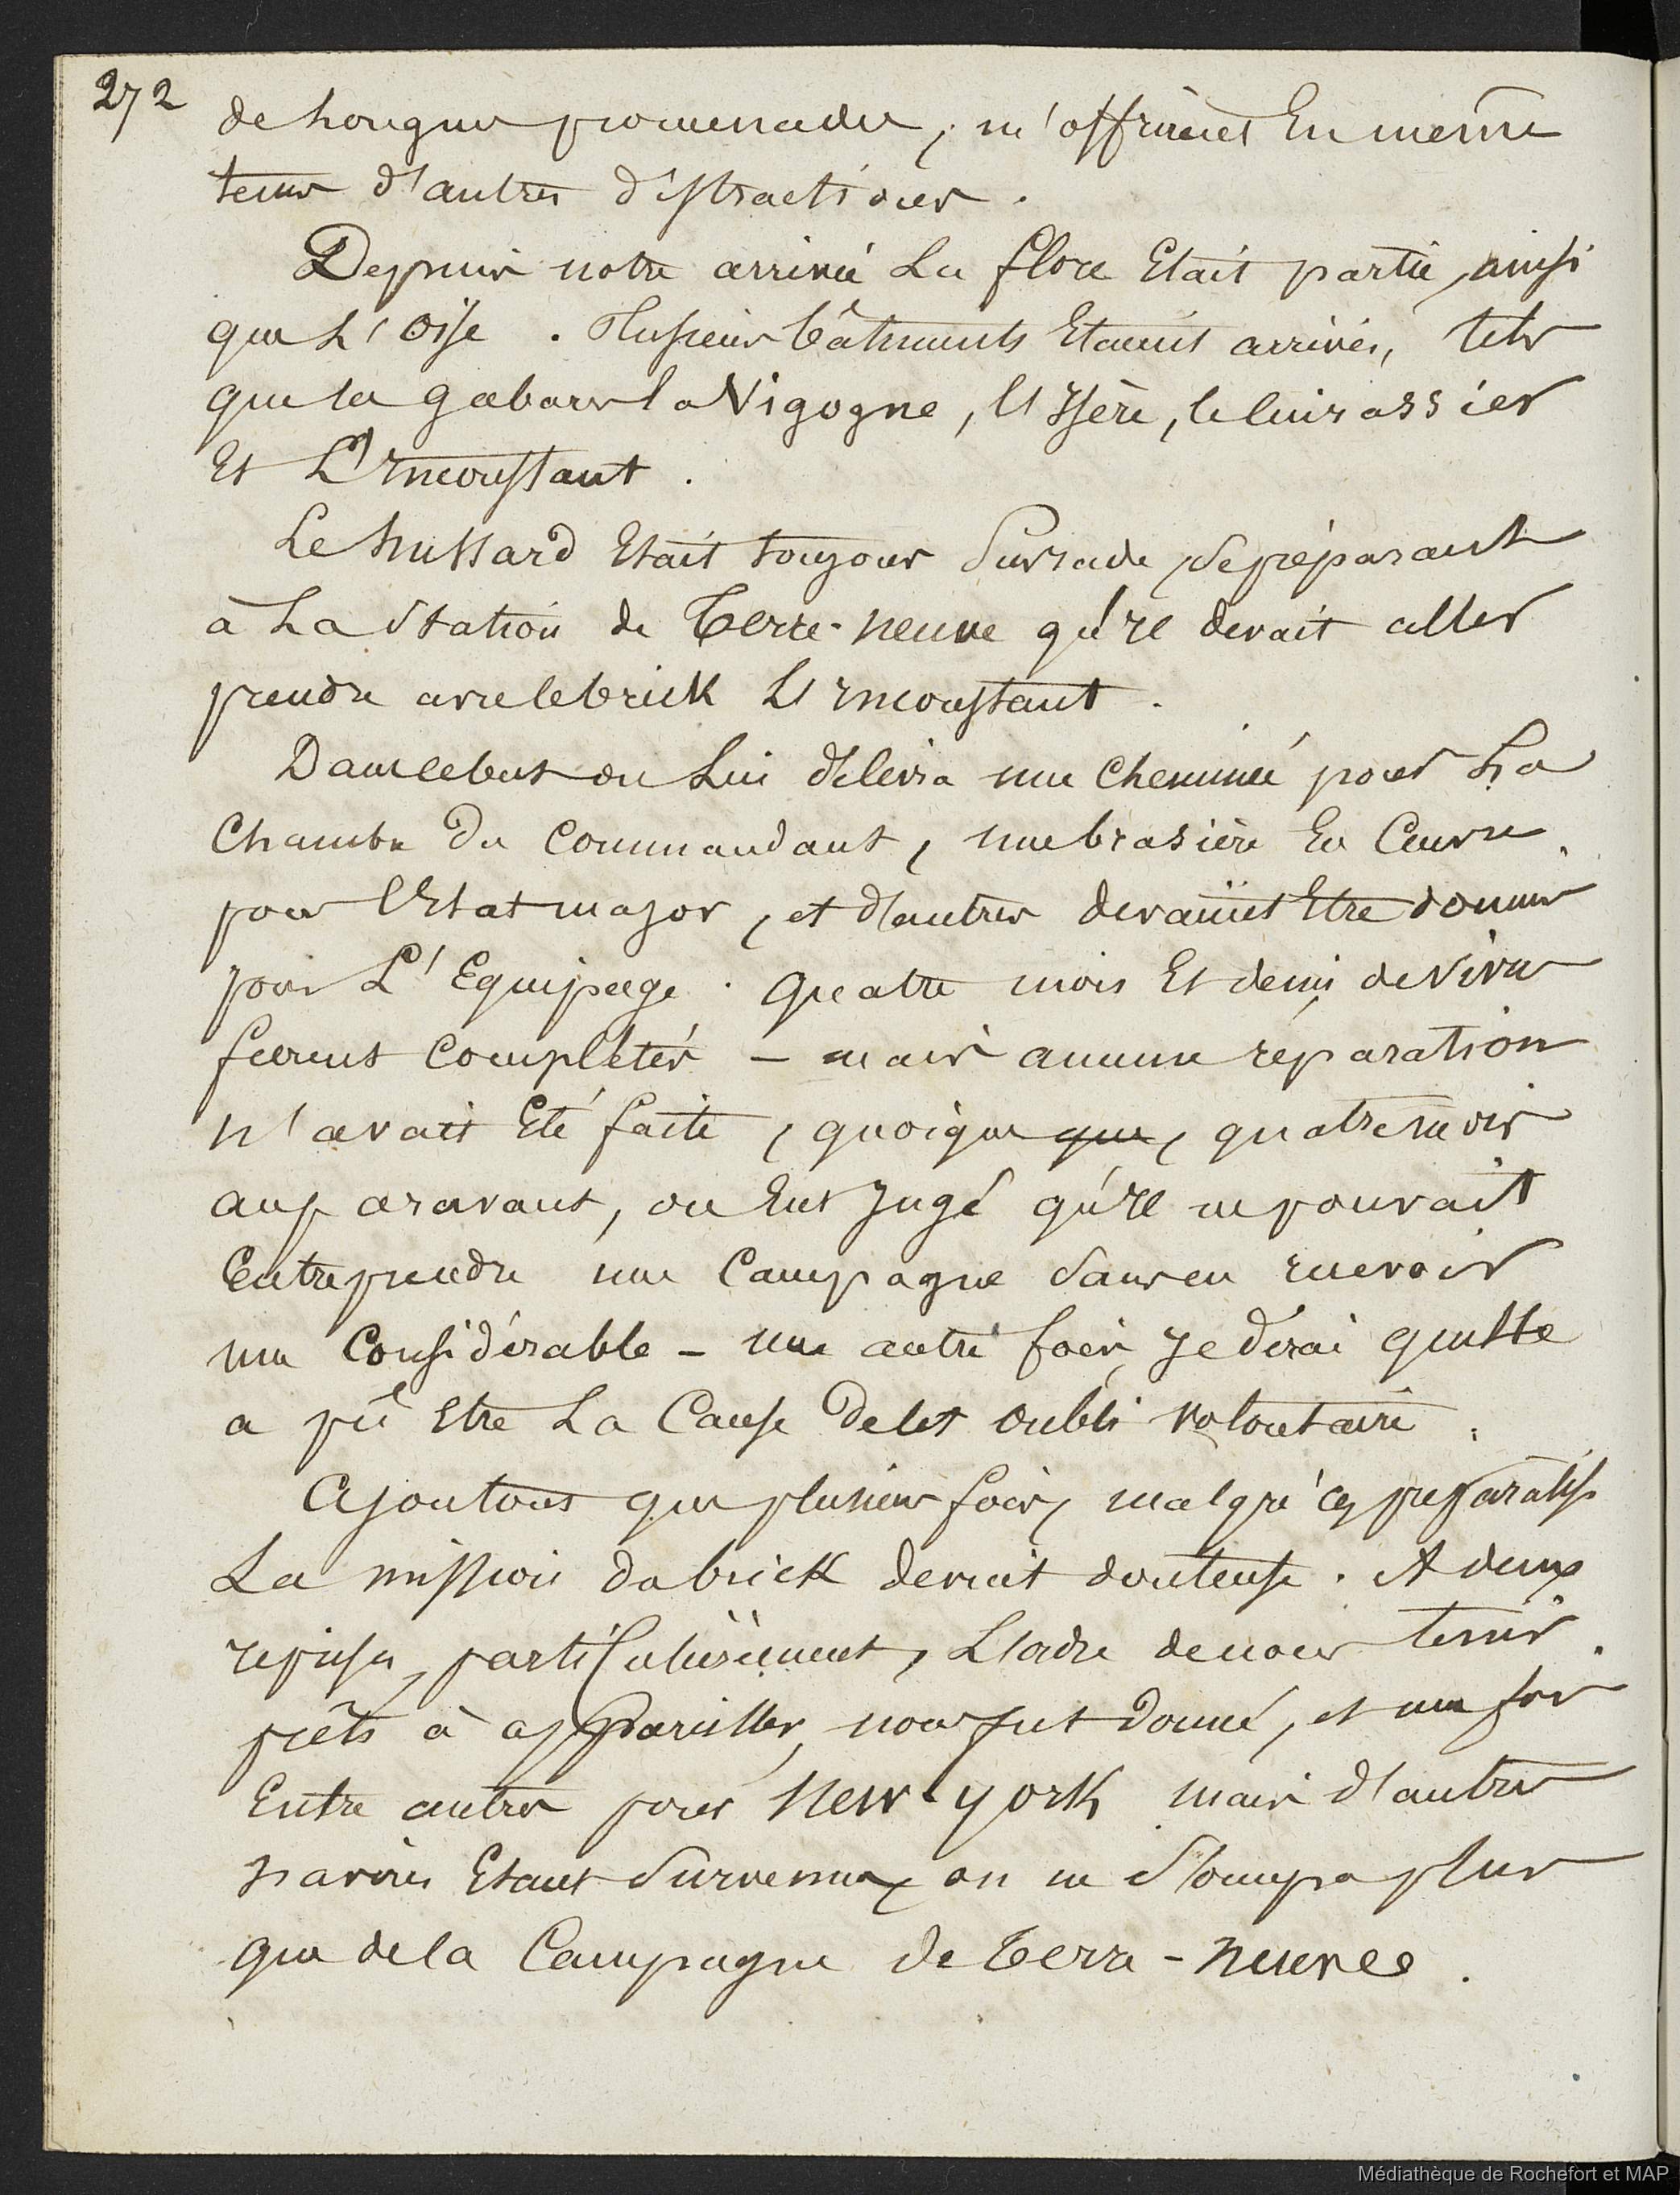 272
de longues promenades, m'offrirent En même
tems d'autres distractions.
Depuis notre arrivée La flore Etait partie, ainsi
que L'Oise. Plusieurs bâtiments Etaient arrivés, tels
que la gabare la Vigogne, l'Isère, le Cuirassier
Et L'Inconstant.
Le hussard Etait toujours Sur rade, se préparant
à La Station de Terre-neuve qu'il devait aller
prendre avec le brick L'Inconstant.
Dans ce but on Lui délivra une cheminée pour La
Chambre du Commandant, une brasière En Cuivre
pour l'Etat major, et d'autres devaient Etre donnés
pour L'Equipage. Quatre mois Et demi de vivres
furent complétés - mais aucune réparation
n'avait Eté faite, quoique que, quatre mois
auparavant, on Eut Jugé qu'il ne pouvait
Entreprendre une Campagne Sans en recevoir
une Considérable - une autre fois, Je dirai quelle
a pû Etre La Cause de cet oubli volontaire.
Ajoutons que plusieurs fois, malgré ces préparatifs
La mission du brick devint douteuse. A deux
reprises, particulièrement, L'ordre de nous tenir
prêts à appareiller, nous fut donné, et une fois
Entre autres pour New-york mais d'autres
navires Etant Survenus, on ne S'occupa plus
que de la Campagne de Terre-neuve.
Médiathèque de Rochefort et MAP